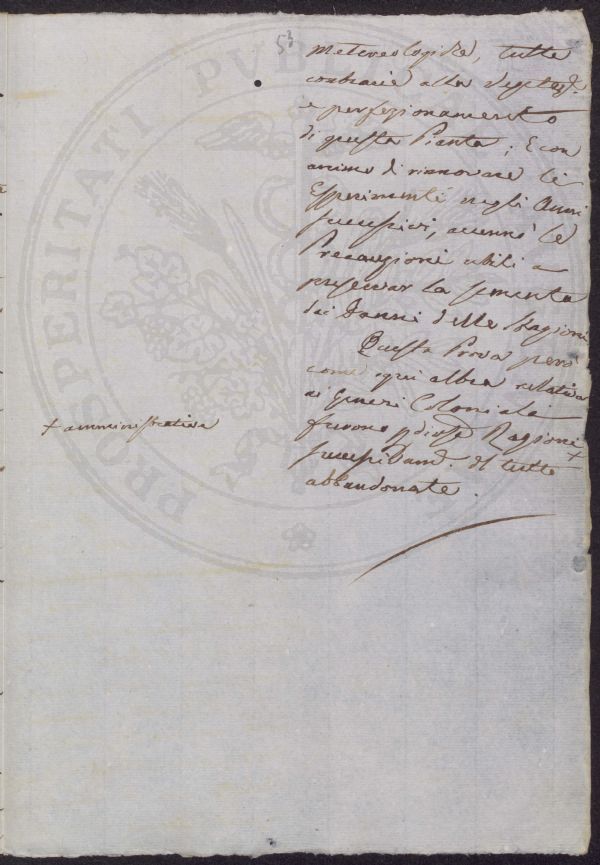 53
meteorologiche, tutte
contrarie alla Vegetaz.e
e perfezionamento
di questa Pianta; E con
animo di rinnovare li
Esperimenti negli Anni
successivi, accennò le
Precauzioni utili a
preservar la sementa
dai Danni delle Stagioni
Questa Prova però
come ogni altra relativa
ai Generi Coloniali
furono p diverse Ragioni +
+ amministrative
successivam.e del tutto
abbandonate.
PROSPERITATI PUBLICAE